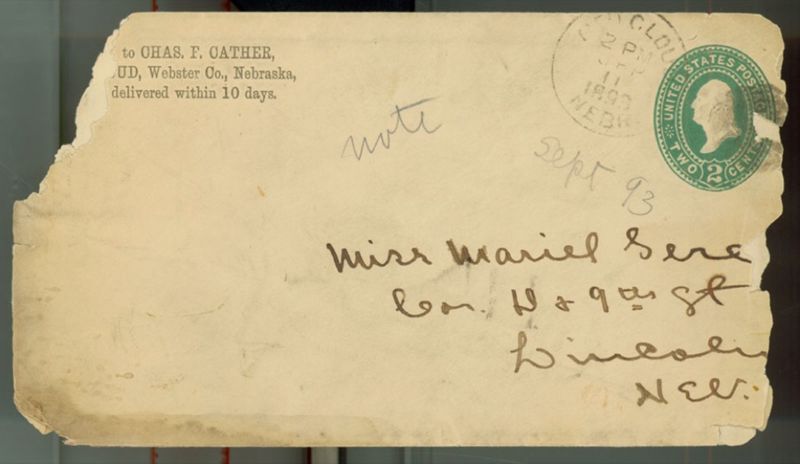 to CHAS. F. CATHER,
UD, Webster Co., Nebraska,
delivered within 10 days.
RED CLOU
2 PM
11
1893
NEBR
UNITED STATES POSTAG
TWO 2 CENT
note
Sept 93
Miss Mariel Gere
Cor. D & 9th St
Lincoln
Neb.